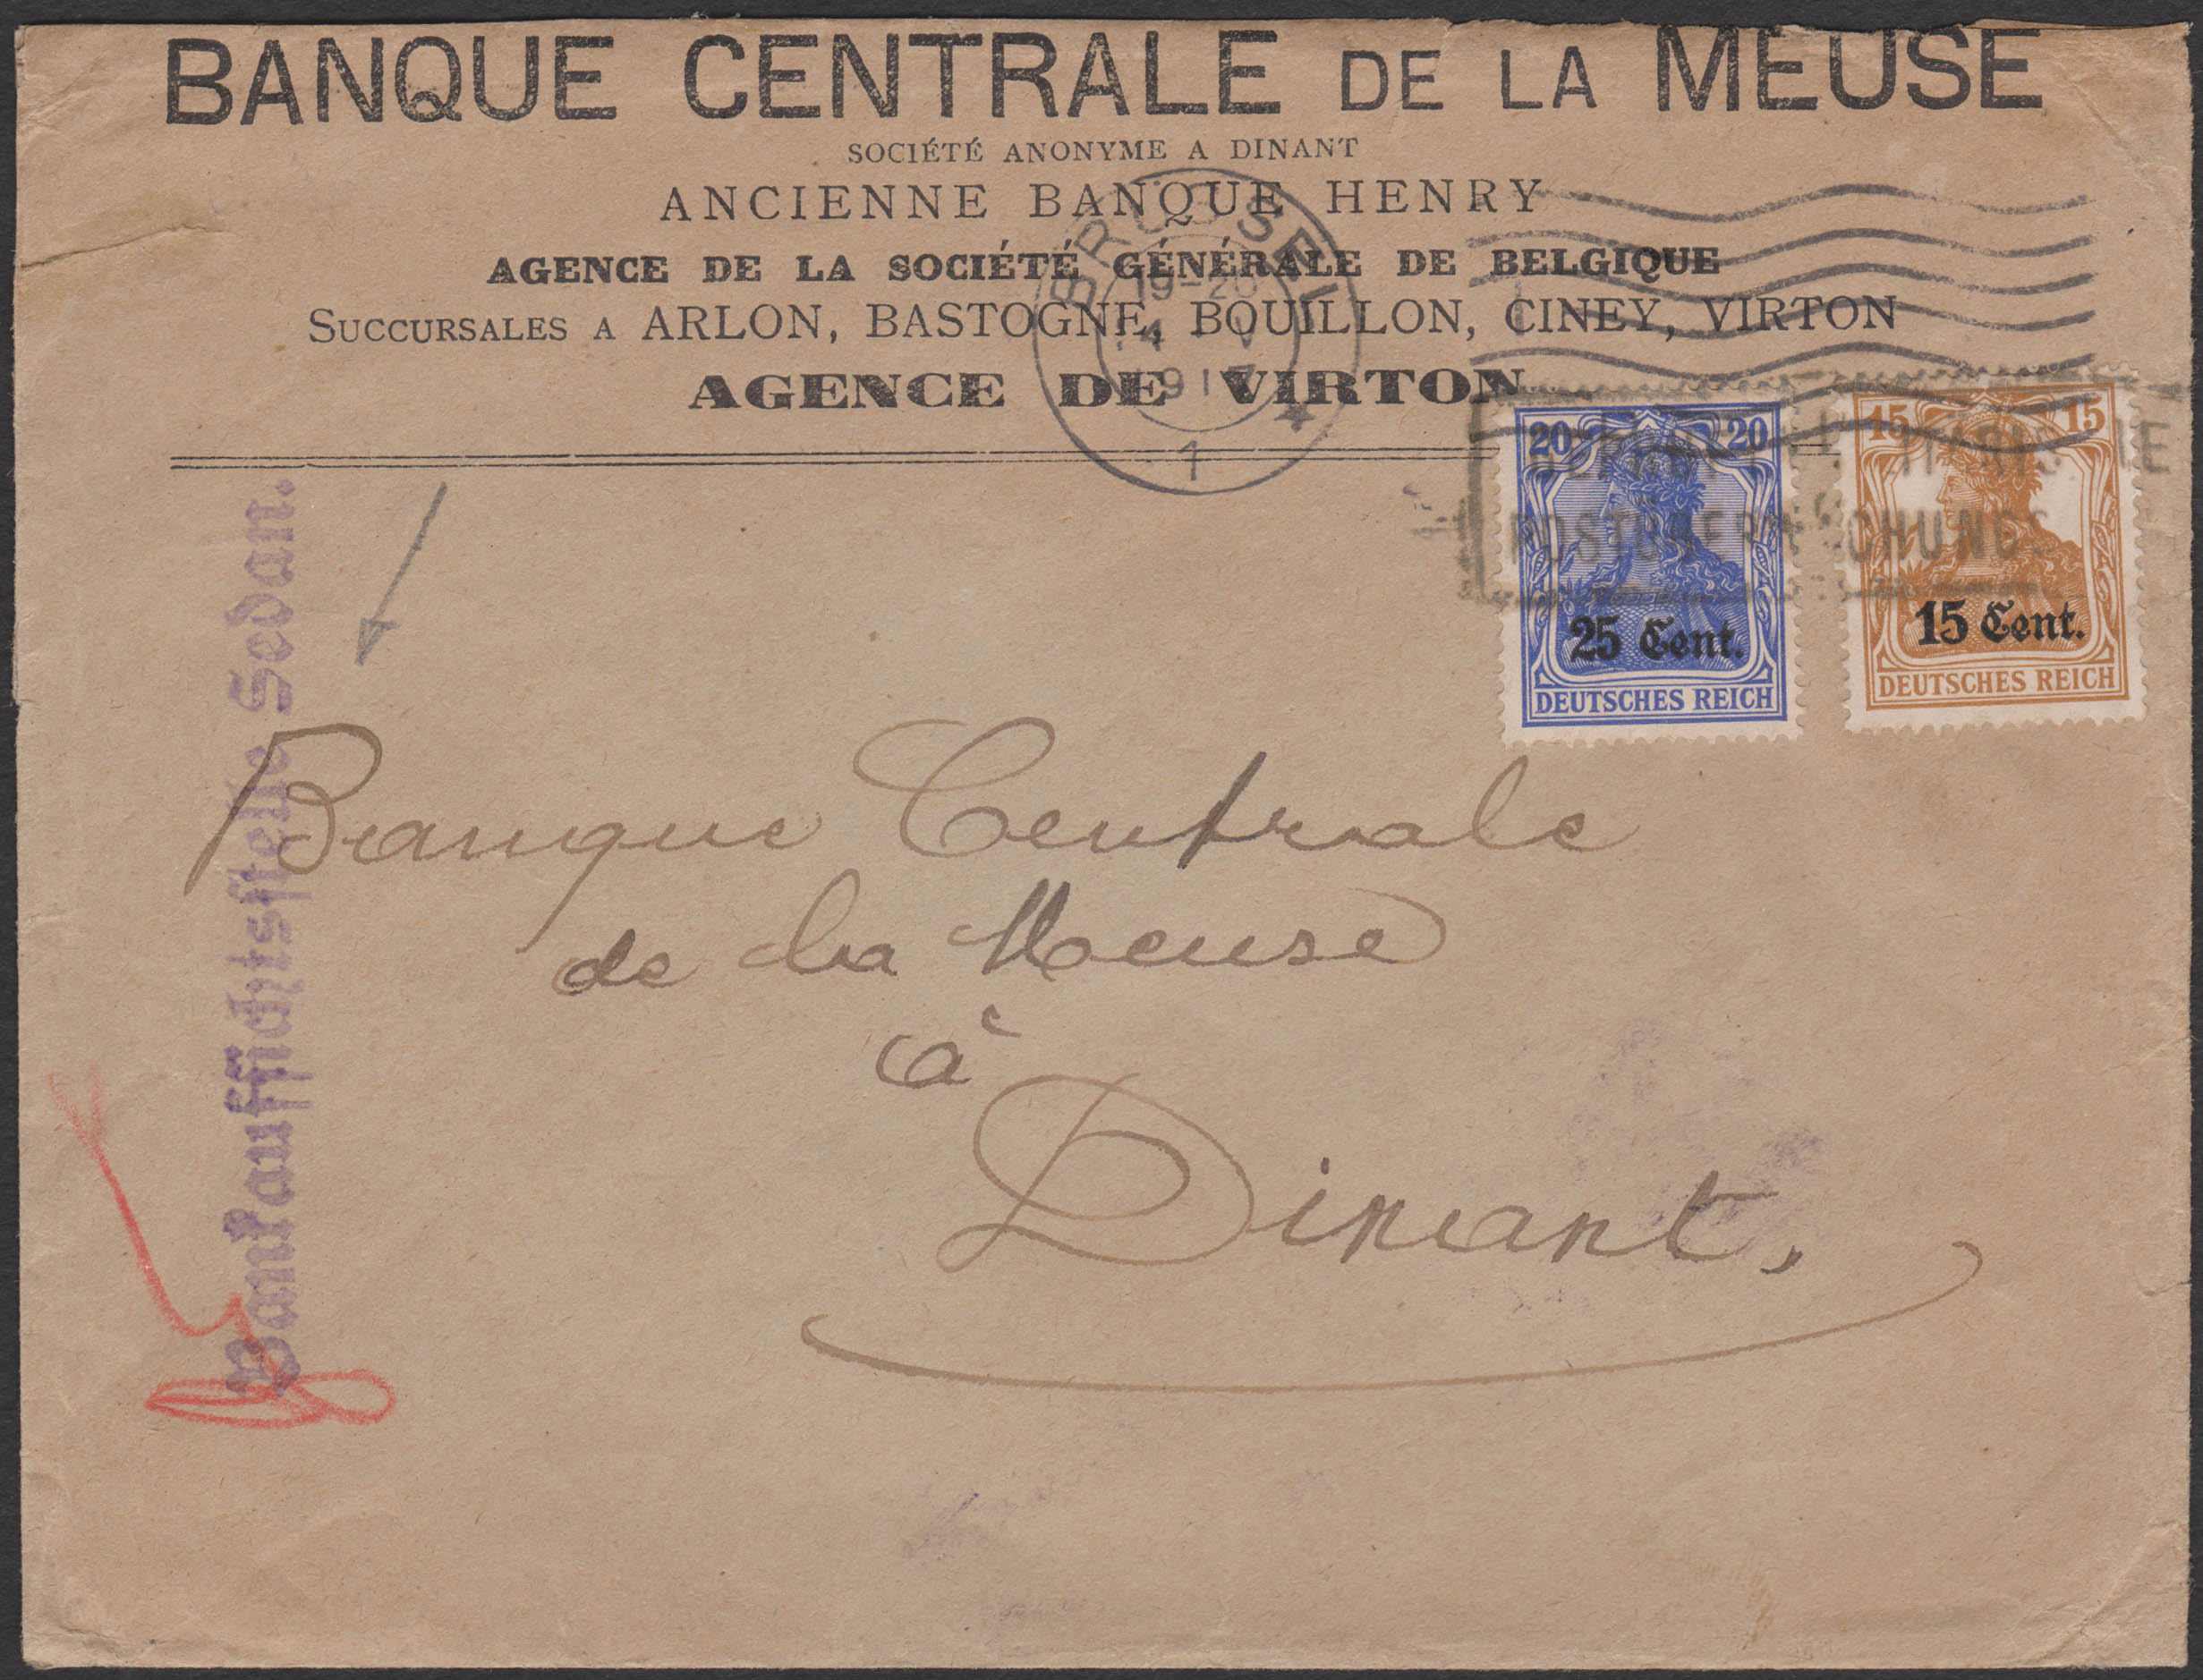 BANQUE CENTRALE DE LA MEUSE
SOCIÉTÉ ANONYME A DINANT
ANCIENNE BANQUE HENRY
AGENCE DE LA SOCIÉTÉ GÉNÉRALE DE BELGIQUE
SUCCURSALES A ARLON, BASTOGNE, BOUILLON, CINEY, VIRTON
AGENCE DE VIRTON
BRÜSSEL
19-20
1917
1
20 20
25 Cent.
DEUTSCHES REICH
15 15
15 Cent.
DEUTSCHES REICH
Bankaufsichtsstelle Sedan.
Banque Centrale
de la Meuse
à
Dinant,